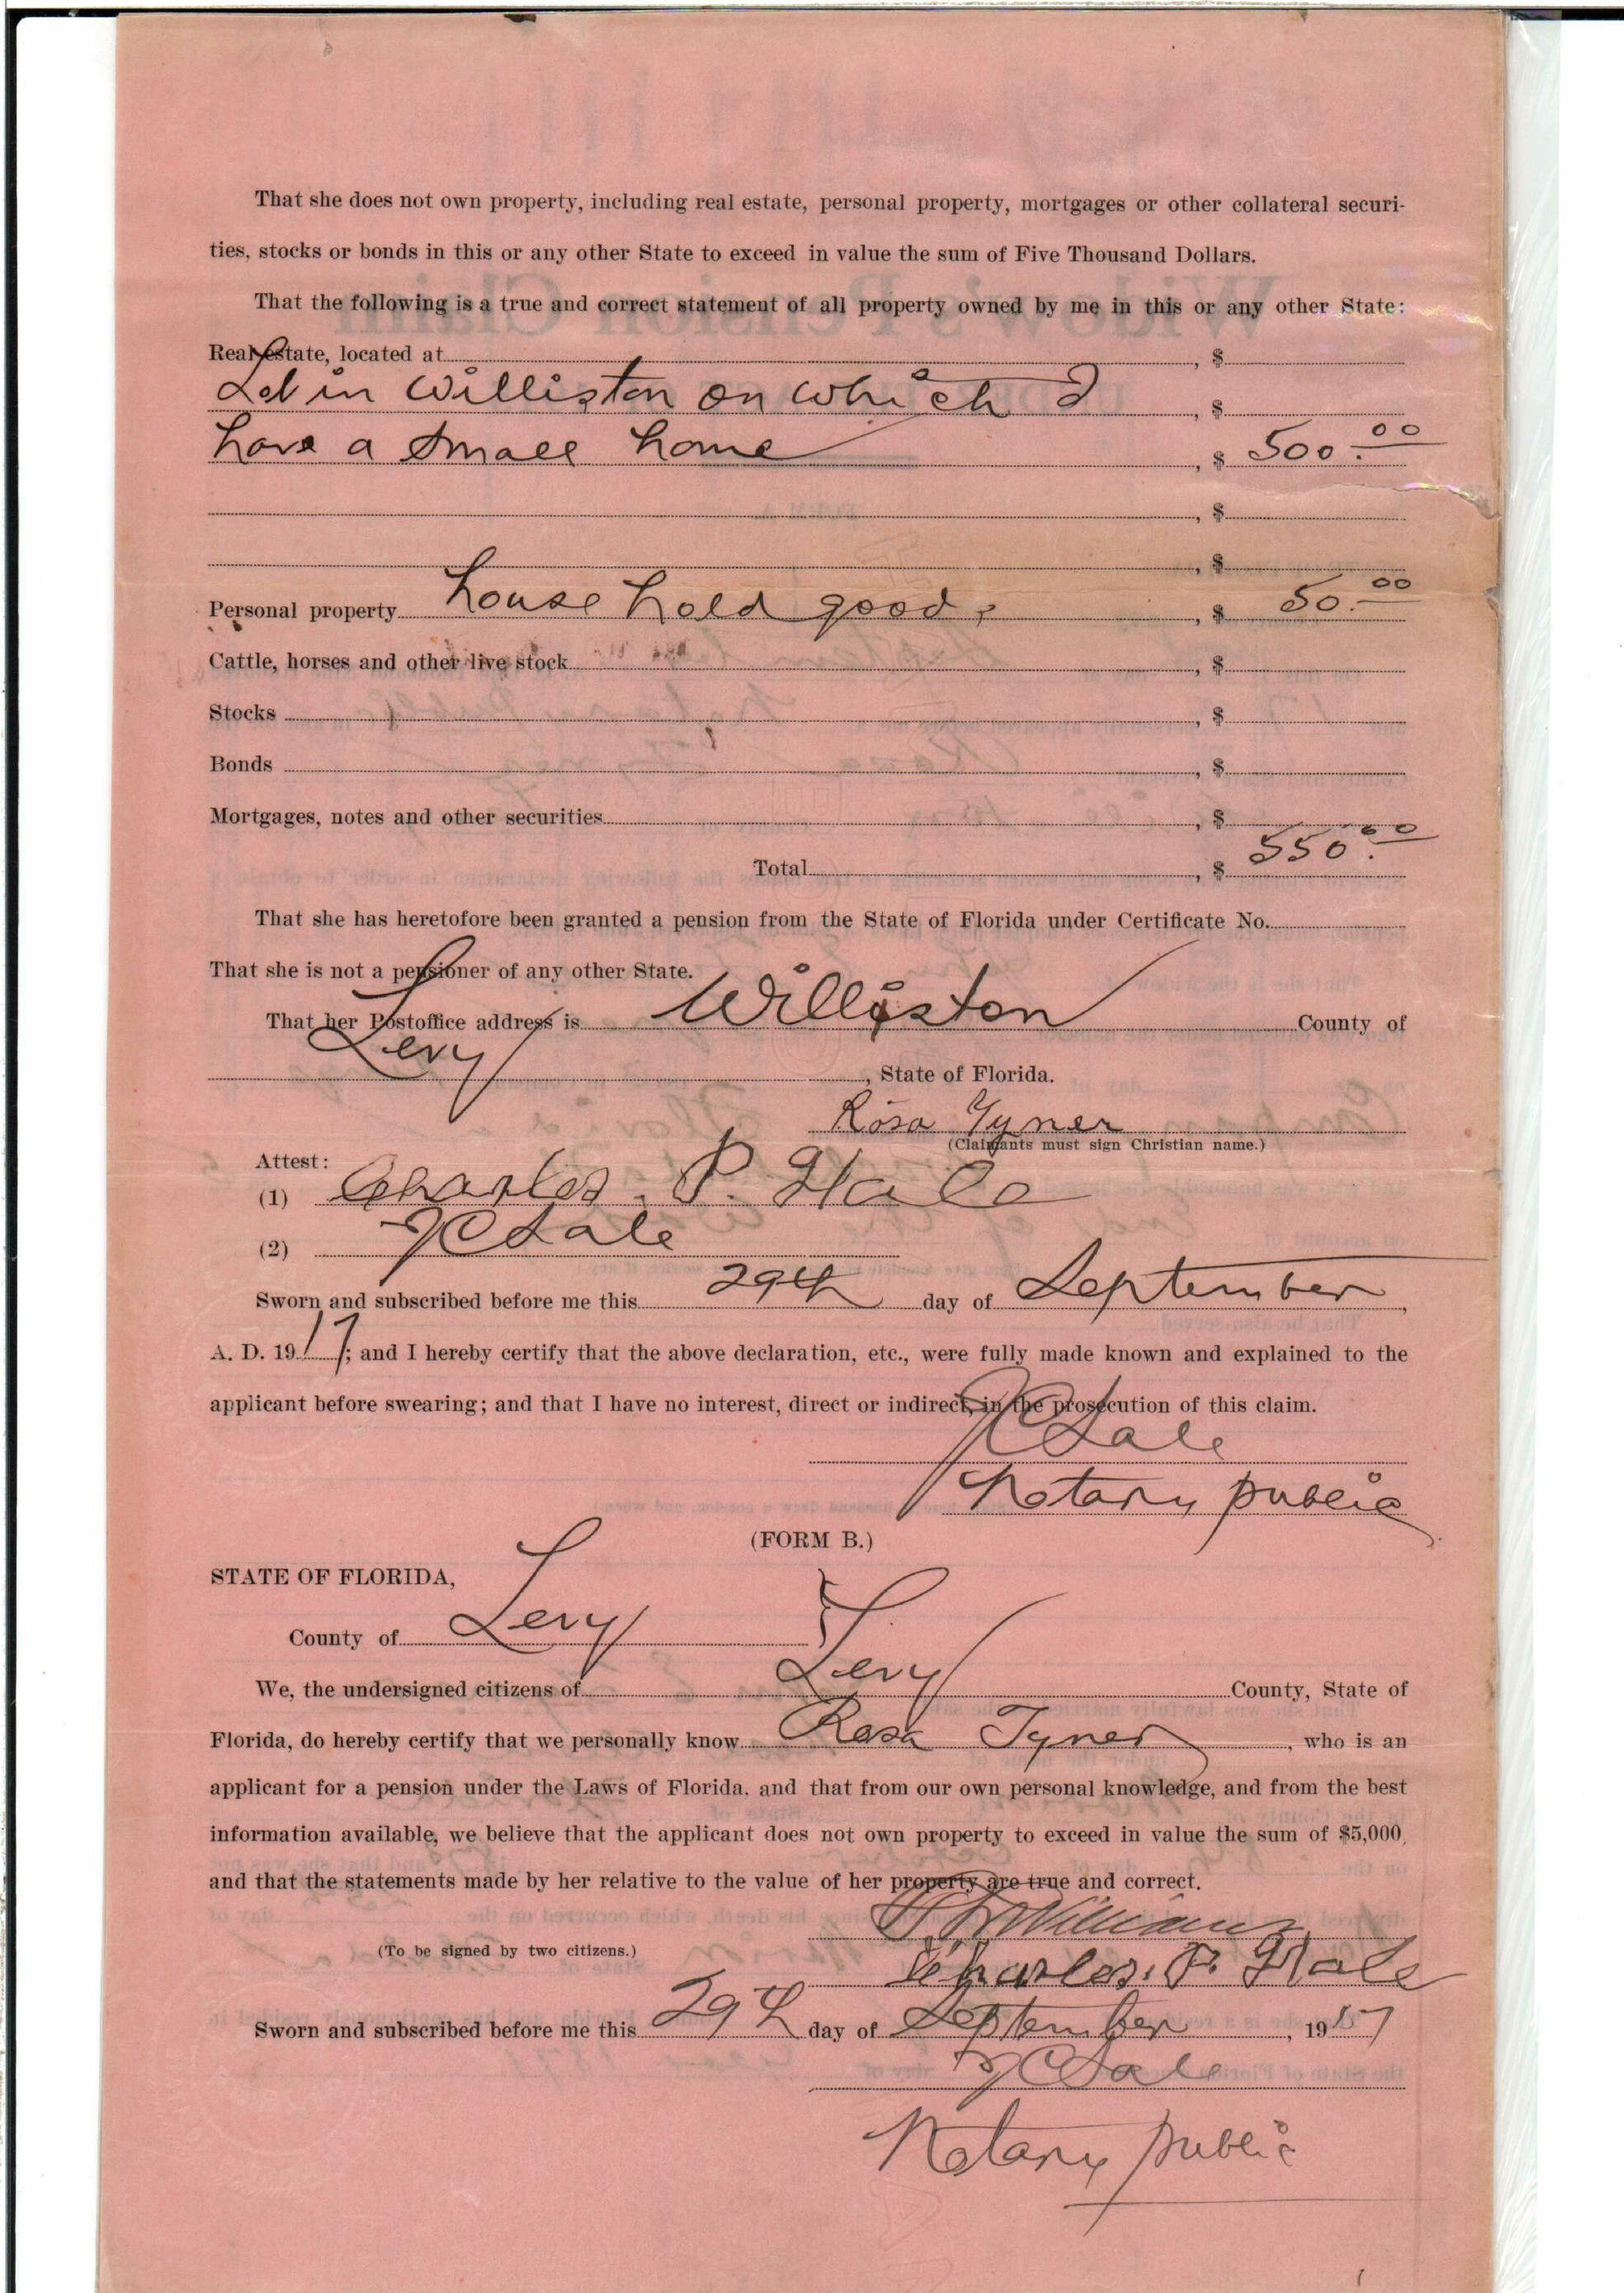 That she does not own property, including real estate, personal property, mortgages or other collateral securi-
ties, stocks or bonds in this or any other State to exceed in value the sum of Five Thousand Dollars.
That the following is a true and correct statement of all property owned by me in this or any other State:
Real Estate, located at , $
Lot in Williston on which I , $
have a small home , $ 500.00
, $
, $
Personal property house hold goods , $ 50.00
Cattle, horses and other live stock , $
Stocks , $
Bonds , $
Mortgages, notes and other securities , $
Total , $ 550.00
That she has heretofore been granted a pension from the State of Florida under Certificate No.
That she is not a pensioner of any other State.
That her Postoffice address is Williston County of
Levy , State of Florida.
Rosa Tyner
(Claimants must sign Christian name.)
Attest:
(1) Charles. P. Hale
(2)
Sworn and subscribed before me this 29th day of September,
A. D. 1917; and I hereby certify that the above declaration, etc., were fully made known and explained to the
applicant before swearing; and that I have no interest, direct or indirect, in the prosecution of this claim.
Notary public
(FORM B.)
STATE OF FLORIDA,
County of Levy
We, the undersigned citizens of Levy County, State of
Florida, do hereby certify that we personally know Rosa Tyner, who is an
applicant for a pension under the Laws of Florida, and that from our own personal knowledge, and from the best
information available, we believe that the applicant does not own property to exceed in value the sum of $5,000,
and that the statements made by her relative to the value of her property are true and correct.
Williams
(To be signed by two citizens.)
Charles. P. Hale
Sworn and subscribed before me this 29th day of September, 1917
Notary public